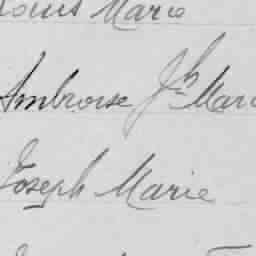 Louis Marie
Ambroise Jh Mari
Joseph Marie